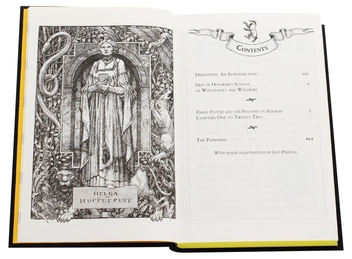 HELGA
HUFFLEPUFF
CONTENTS
HUFFLEPUFF: AN INTRODUCTION VIII
MAP OF HOGWARTS SCHOOL
OF WITCHCRAFT AND WIZARDRY
HARRY POTTER AND THE PRISONER OF AZKABAN 1
CHAPTERS ONE TO TWENTY-TWO
THE PATRONUS
WITH INSIDE ILLUSTRATIONS BY LEVI PINFOLD